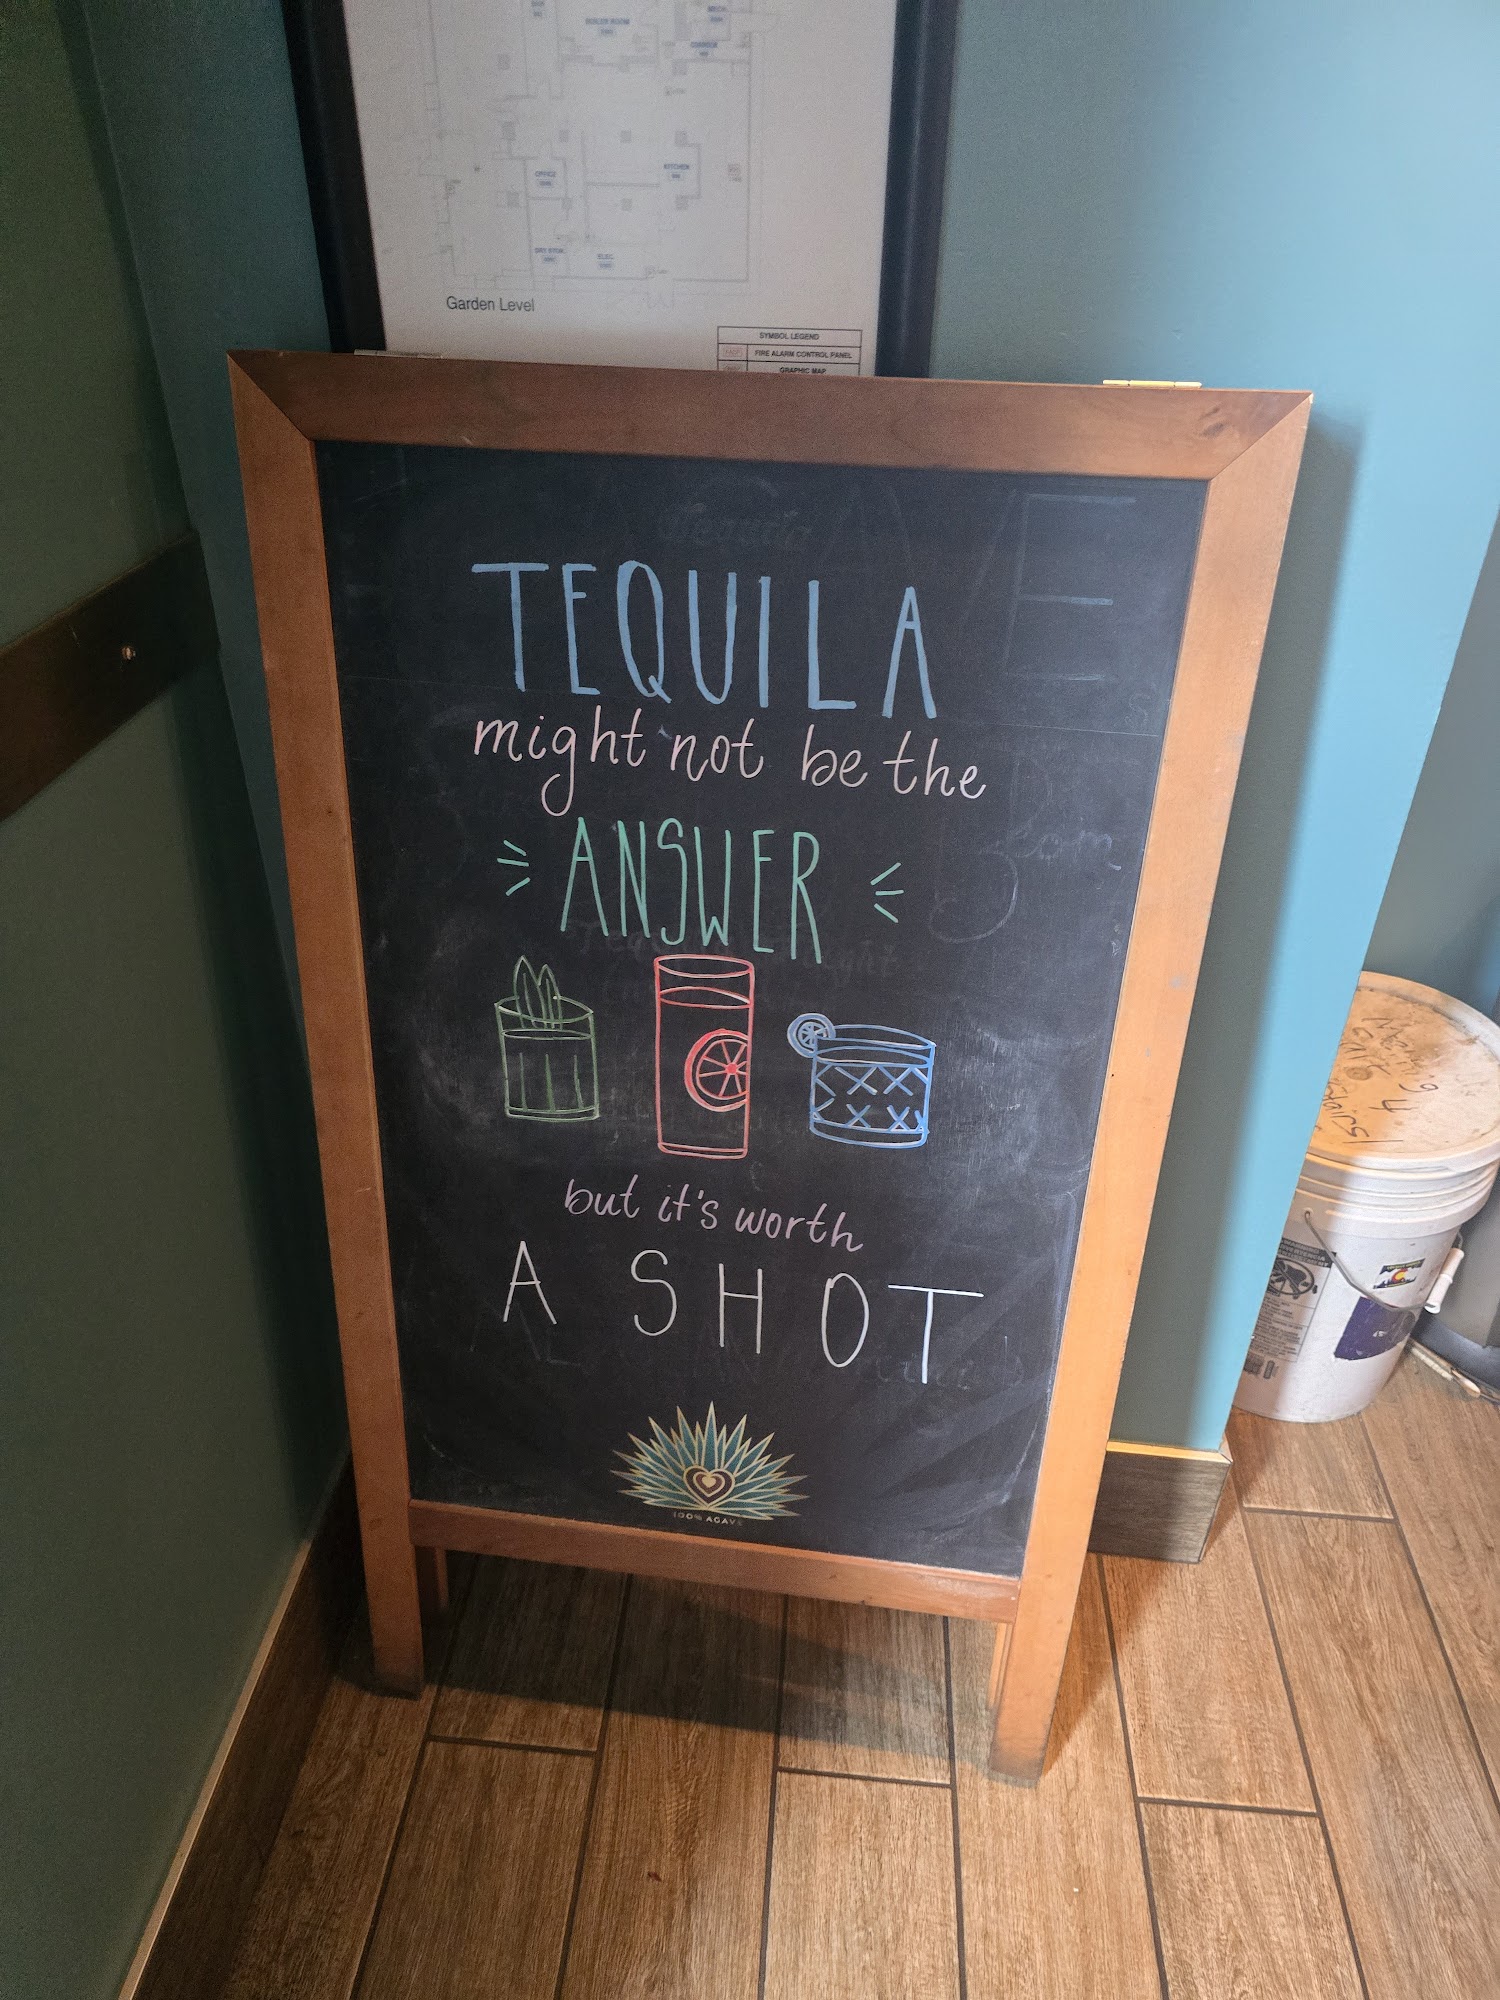 BOILER ROOM
OFFICE
KITCHEN
ELEC.
Garden Level
SYMBOL LEGEND
FIRE ALARM CONTROL PANEL
GRAPHIC MAP
TEQUILA
might not be the
ANSWER
but it's worth
A SHOT
100% AGAVE